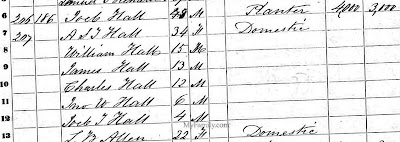 6 206 186 Jock Hall 48 M Planter 4,000 3,000
7 207 A J J Hall 34 F Domestic
8 William Hall 15 M
9 James Hall 13 M
10 Charles Hall 12 M
11 Jno W Hall 6 M
12 Jock T Hall 4 M
13 L B Allen 22 F Domestic